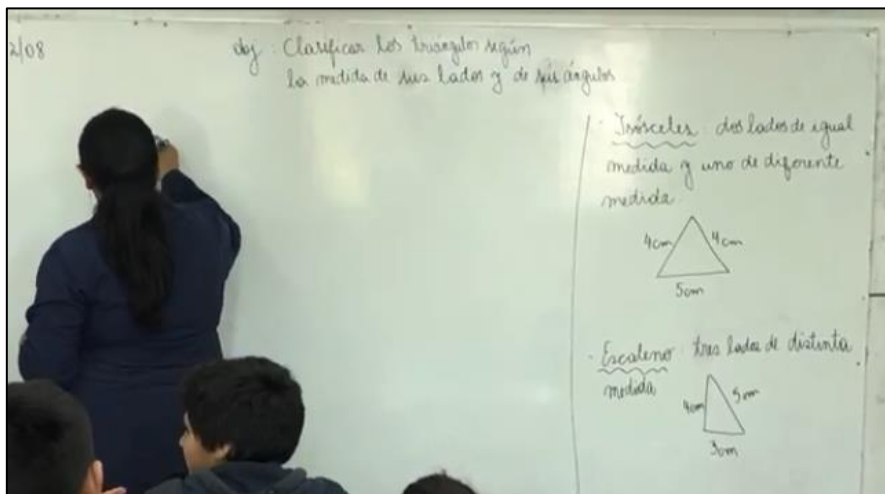 2/08
obj : Clasificar los triángulos según
la medida de sus lados y de sus ángulos
· Isósceles : dos lados de igual
medida y uno de diferente
medida.
4cm 4cm
5cm
· Escaleno : tres lados de distinta
medida
4cm 5cm
3cm